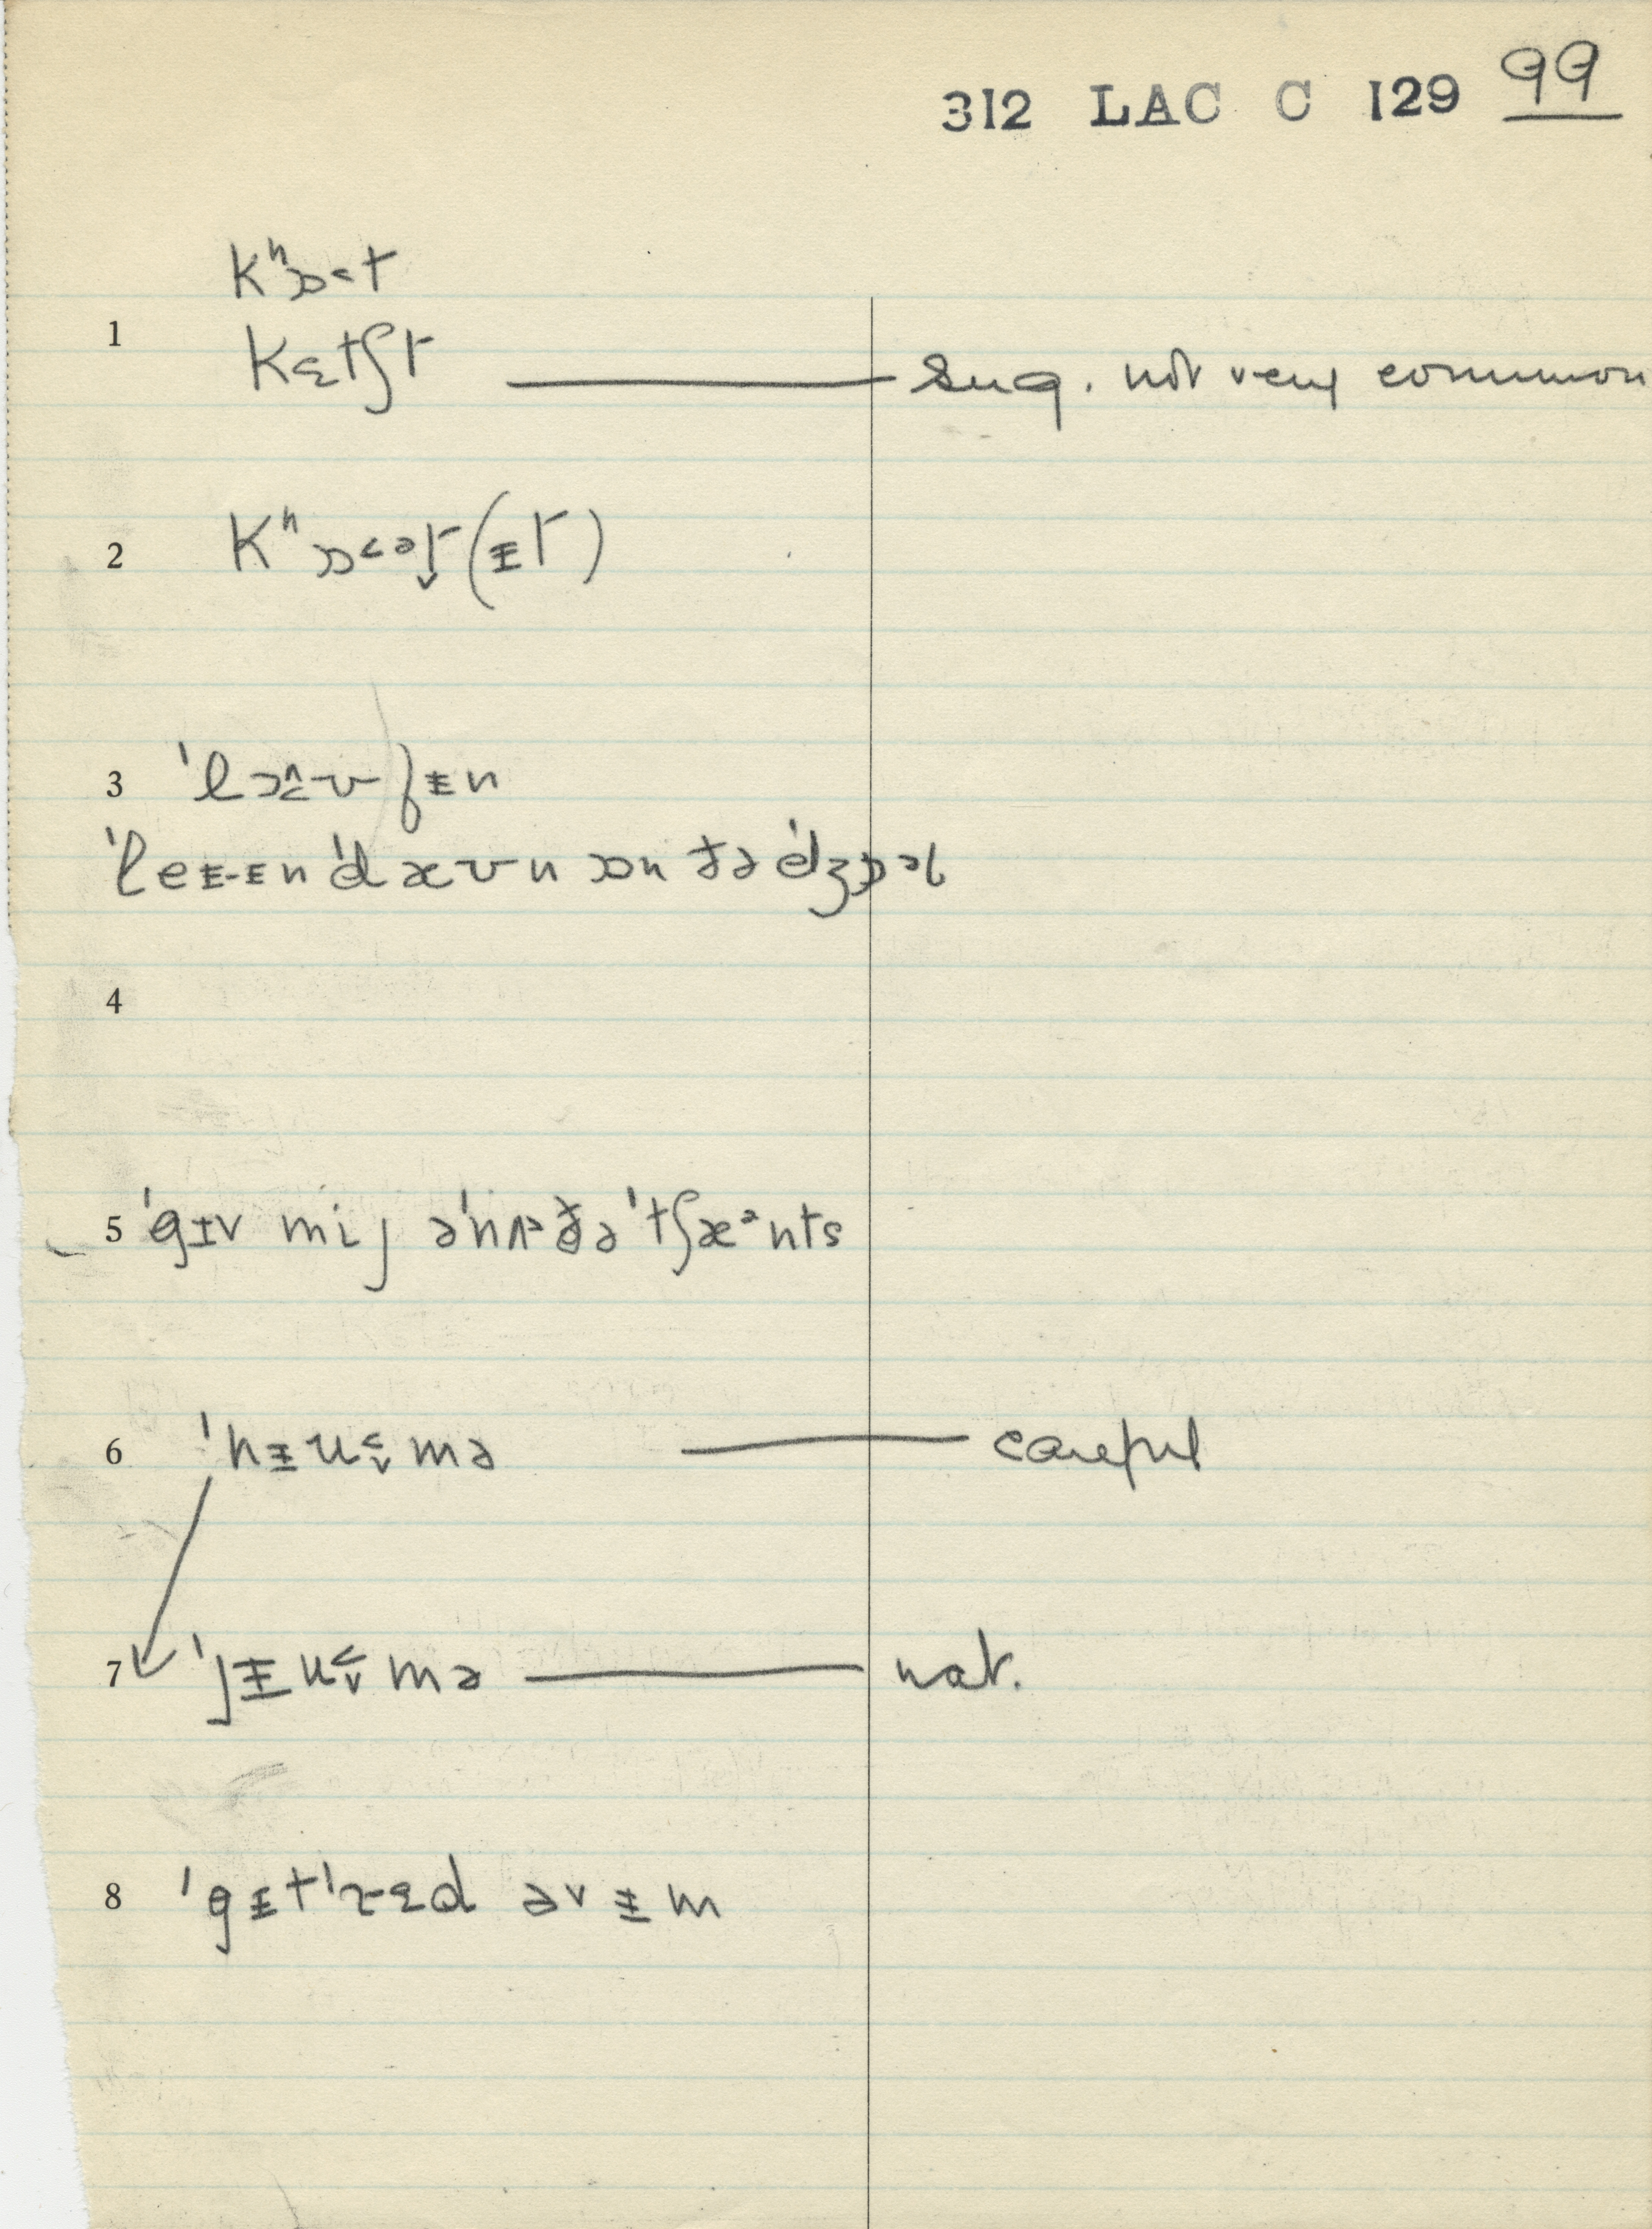 312 LAC C 129 99
kʰɒ˂t
1 kɛtʃt sug. not very common
2 kʰɒ˂ət̬(ɨt)
3
ˈleɨ-ɨn ˈdæʊn ɒn ðə ˈdʒɒəb
4
5 ˈgɪv mij əˈnʌðə ˈtʃæᵊnts
6 ˈhɨu˂̬mə careful
7 ˈjɨu˂̬mə nat.
8 ˈgɨtˈrɛd əv ɨm